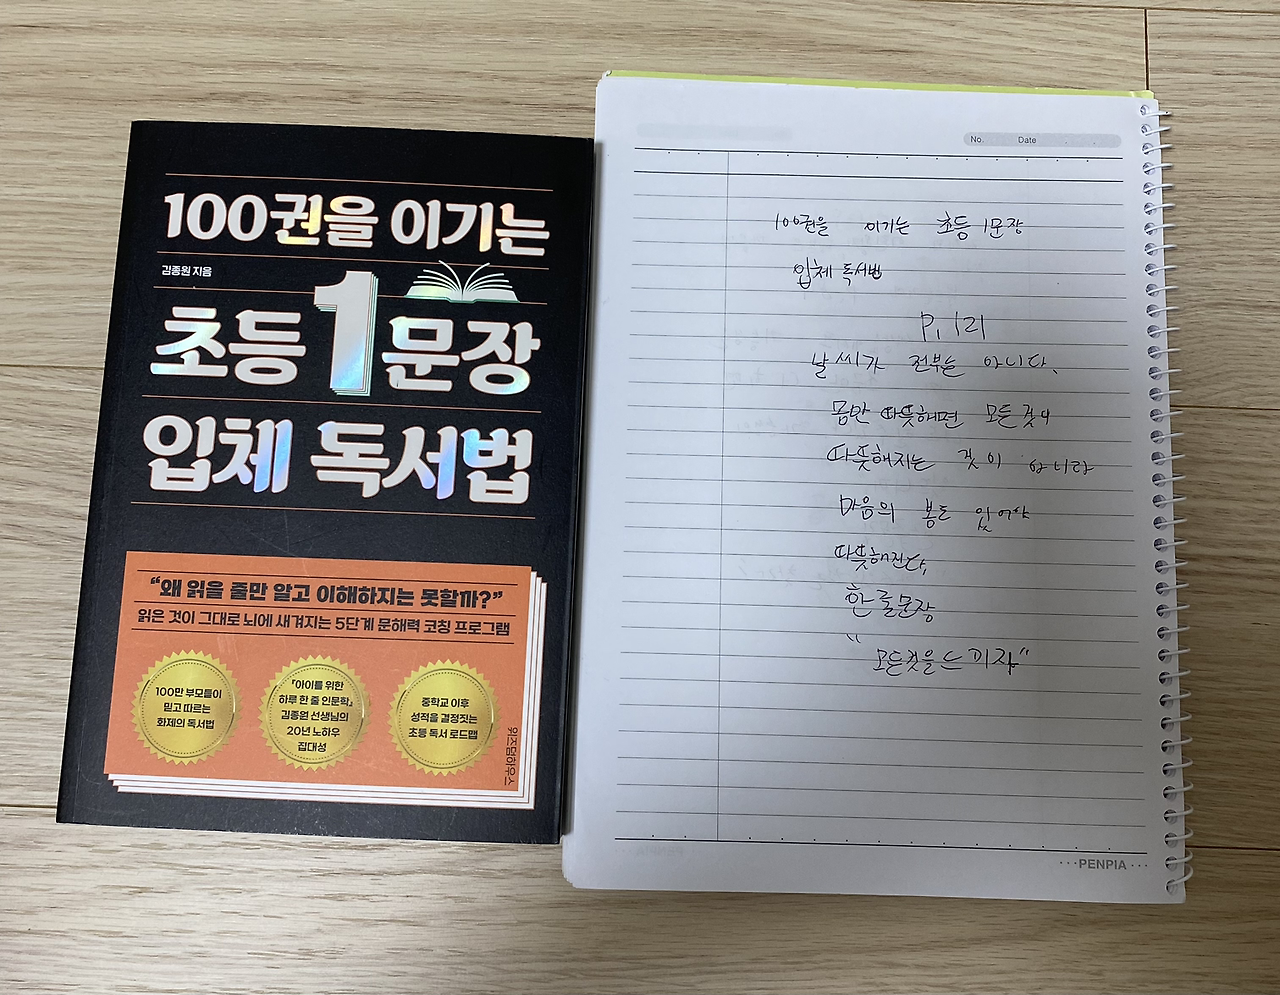 100권을 이기는
김종원 지음
초등 1 문장
입체 독서법
“왜 읽을 줄만 알고 이해하지는 못할까?”
읽은 것이 그대로 뇌에 새겨지는 5단계 문해력 코칭 프로그램
100만 부모들이
믿고 따르는
화제의 독서법
『아이를 위한
하루 한 줄 인문학』
김종원 선생님의
20년 노하우
집대성
중학교 이후
성적을 결정짓는
초등 독서 로드맵
위즈덤하우스
No. Date
100권을 이기는 초등 1문장
입체 독서법
P. 121
날씨가 전부는 아니다.
몸만 따뜻해면 모든 것이
따뜻해지는 것이 아니라
마음의 봄도 있어야
따뜻해진다.
한 줄 문장
“모든것을 느끼자”
PENPIA